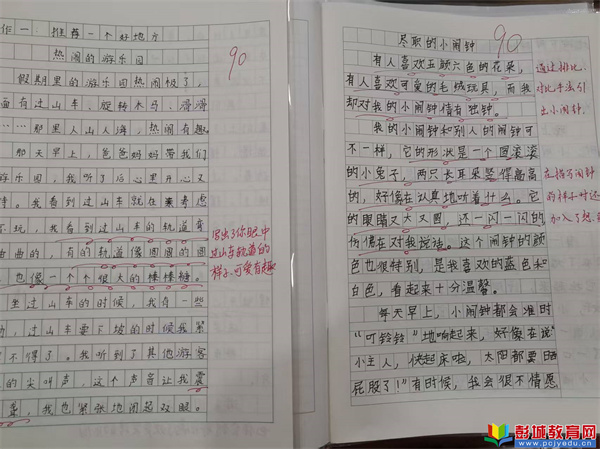 作一：推荐一个好地方
热闹的游乐园
假期里的游乐园热闹极了，
面有过山车、旋转木马、滑滑
……那里人山人海，热闹有趣
那天早上，爸爸妈妈带我们
游乐园，我听了后心里开心又
待。我看到过山车就在
不玩，我看到过山车的轨道弯
曲曲的，有的轨道像圆圆的
，也像一个个很大的棒棒糖。
坐过山车的时候，我有一些
动，过山车要下坡的时候我紧
不得了。我听到了其他游客
的尖叫声，这个声音让我震
，我也紧张地闭起双眼。
90
写出了你眼中
过山车轨道的
样子，可爱有趣
尽职的小闹钟
90
有人喜欢五颜六色的花朵，
有人喜欢可爱的毛绒玩具，而我
却对我的小闹钟情有独钟。
我的小闹钟和别人的闹钟可
不一样，它的形状是一个圆滚滚
的小兔子，两只长耳朵竖得高高
的，好像在认真地听着什么。它
的眼睛又大又圆，还一闪一闪的
仿佛在对我说话。这个闹钟的颜
色也很特别，是我喜欢的蓝色和
白色，看起来十分温馨。
每天早上，小闹钟都会准时
“叮铃铃”地响起来，好像在说
小主人，快起床啦，太阳都要晒
屁股了！”有时候，我会很不情愿
通过排比、
对比手法引
出小闹钟.
在描写闹钟
的样子时还
加入了想
彭城教育网
www.pcjyedu.cn